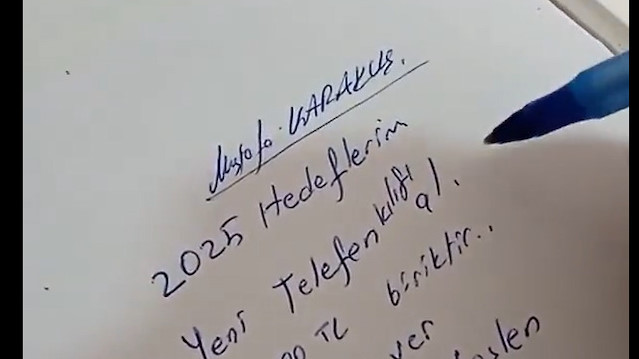 Mustafa KARAKUŞ.
2025 Hedeflerim
Yeni Telefon kılıfı al.
TL biriktir..
ver